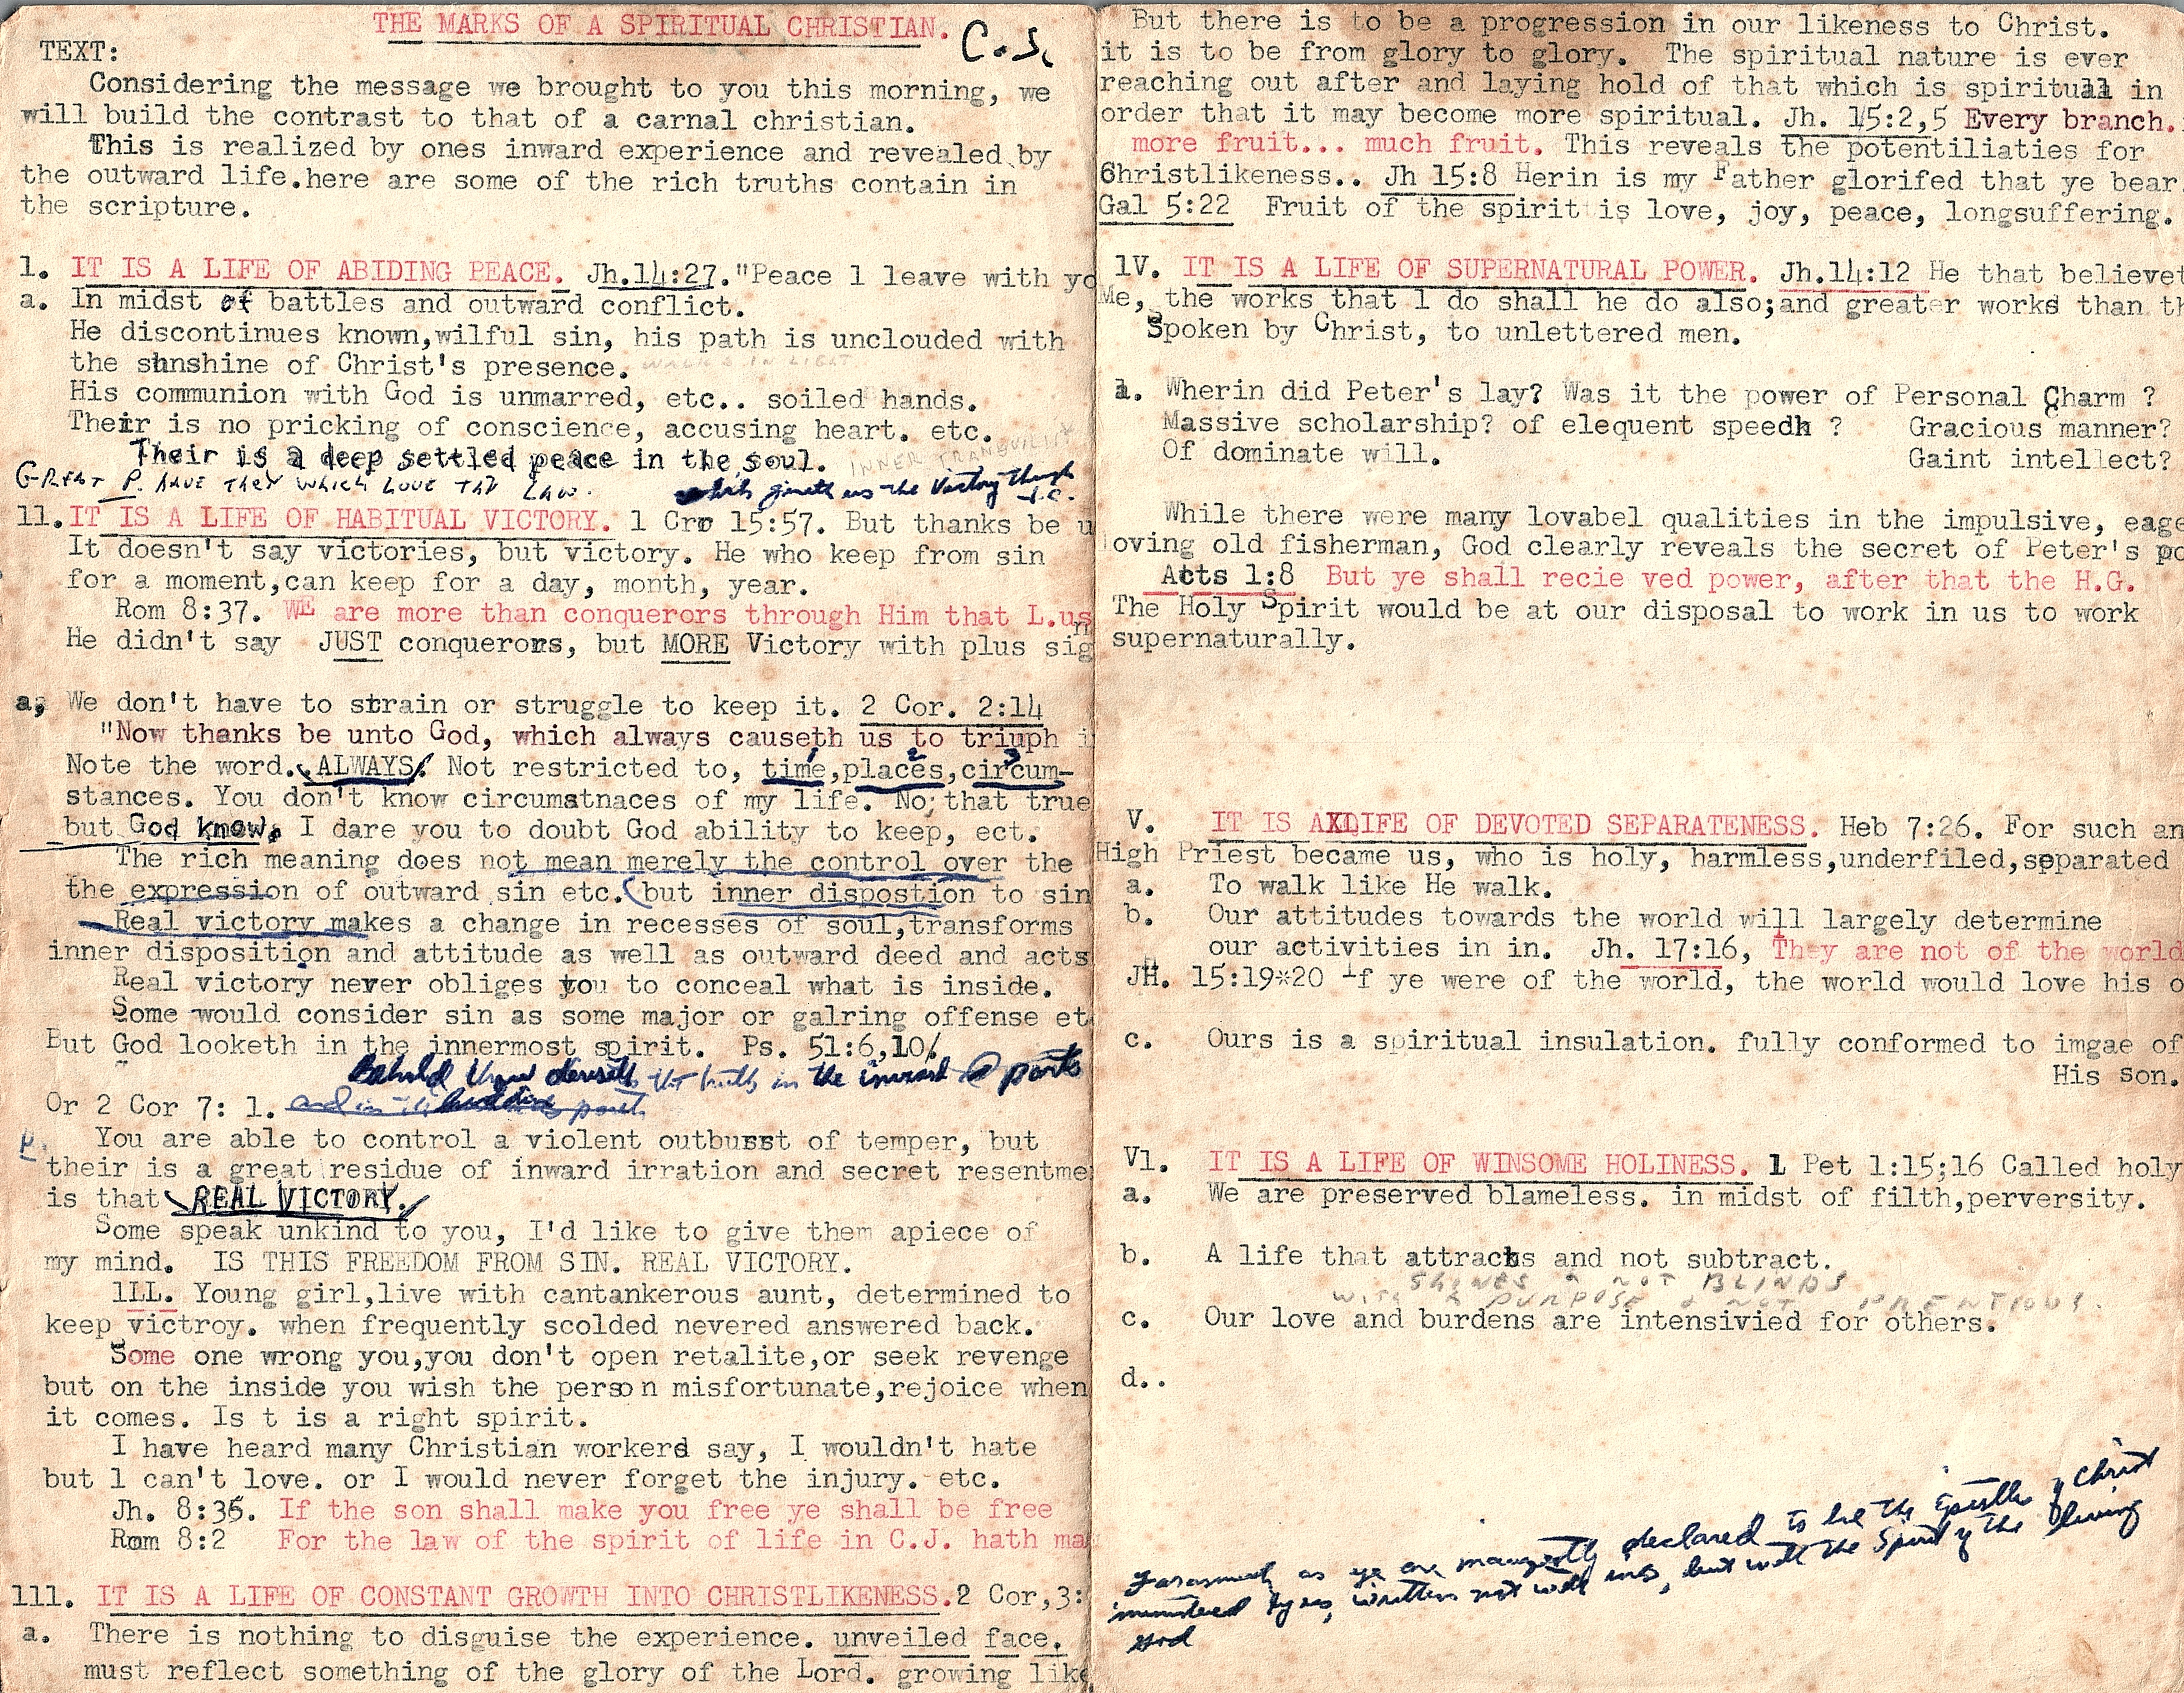 THE MARKS OF A SPIRITUAL CHRISTIAN.
C.S.
TEXT:
Considering the message we brought to you this morning, we
will build the contrast to that of a carnal christian.
This is realized by ones inward experience and revealed by
the outward life.here are some of the rich truths contain in
the scripture.
1. IT IS A LIFE OF ABIDING PEACE. Jh.14:27."Peace l leave with yo
a. In midst of battles and outward conflict.
He discontinues known,wilful sin, his path is unclouded with
the shnshine of Christ's presence. WALKS IN LIGHT
His communion with God is unmarred, etc.. soiled hands.
Their is no pricking of conscience, accusing heart. etc.
Their is a deep settled peace in the soul. INNER TRANQUILITY
GREAT P. HAVE THEY WHICH LOVE THY LAW. which giveth us the Victory through J.C.
11.IT IS A LIFE OF HABITUAL VICTORY. 1 Cro 15:57. But thanks be u
It doesn't say victories, but victory. He who keep from sin
for a moment,can keep for a day, month, year.
Rom 8:37. WE are more than conquerors through Him that L.us
He didn't say JUST conquerors, but MORE Victory with plus sig
a, We don't have to strain or struggle to keep it. 2 Cor. 2:14
"Now thanks be unto God, which always causeth us to triuph i
1 2 3
Note the word. ALWAYS! Not restricted to, time,places,circum-
stances. You don't know circumatnaces of my life. No; that true
but God know. I dare you to doubt God ability to keep, ect.
The rich meaning does not mean merely the control over the
the expression of outward sin etc. (but inner dispostion to sin
Real victory makes a change in recesses of soul,transforms
inner disposition and attitude as well as outward deed and acts
Real victory never obliges you to conceal what is inside.
Some would consider sin as some major or galring offense et
But God looketh in the innermost spirit. Ps. 51:6,10/
Behold thou desireth the truth in the inward parts
Or 2 Cor 7: 1. and in the hidden part
You are able to control a violent outburst of temper, but
their is a great residue of inward irration and secret resentme
is that REAL VICTORY.
Some speak unkind to you, I'd like to give them apiece of
my mind. IS THIS FREEDOM FROM SIN. REAL VICTORY.
lLL. Young girl,live with cantankerous aunt, determined to
keep victroy. when frequently scolded nevered answered back.
Some one wrong you,you don't open retalite,or seek revenge
but on the inside you wish the perso n misfortunate,rejoice when
it comes. Is t is a right spirit.
I have heard many Christian workers say, I wouldn't hate
but l can't love. or I would never forget the injury. etc.
Jh. 8:36. If the son shall make you free ye shall be free
Rom 8:2 For the law of the spirit of life in C.J. hath ma
111. IT IS A LIFE OF CONSTANT GROWTH INTO CHRISTLIKENESS.2 Cor,3:
a. There is nothing to disguise the experience. unveiled face.
must reflect something of the glory of the Lord. growing like
But there is to be a progression in our likeness to Christ.
it is to be from glory to glory. The spiritual nature is ever
reaching out after and laying hold of that which is spiritual in
order that it may become more spiritual. Jh. 15:2,5 Every branch.
more fruit... much fruit. This reveals the potentiliaties for
Christlikeness.. Jh 15:8 Herin is my Father glorifed that ye bear
Gal 5:22 Fruit of the spirit is love, joy, peace, longsuffering.
1V. IT IS A LIFE OF SUPERNATURAL POWER. Jh.14:12 He that believet
Me, the works that l do shall he do also;and greater works than th
Spoken by Christ, to unlettered men.
a. Wherin did Peter's lay? Was it the power of Personal Charm ?
Massive scholarship? of elequent speedh ? Gracious manner?
Of dominate will. Gaint intellect?
While there were many lovabel qualities in the impulsive, eage
oving old fisherman, God clearly reveals the secret of Peter's po
Acts 1:8 But ye shall recie ved power, after that the H.G.
The Holy Spirit would be at our disposal to work in us to work
supernaturally.
V. IT IS AXLIFE OF DEVOTED SEPARATENESS. Heb 7:26. For such an
High Priest became us, who is holy, harmless,underfiled,separated
a. To walk like He walk.
b. Our attitudes towards the world will largely determine
our activities in in. Jh. 17:16, They are not of the world
JH. 15:19*20 If ye were of the world, the world would love his o
c. Ours is a spiritual insulation. fully conformed to imgae of
His son.
V1. IT IS A LIFE OF WINSOME HOLINESS. 1 Pet 1:15;16 Called holy
a. We are preserved blameless. in midst of filth,perversity.
b. A life that attracts and not subtract.
SHINES & NOT BLINDS
WITH A PURPOSE & NOT
c. Our love and burdens are intensivied for others.
d..
Forasmuch as ye are manifestly declared to be the Epistle of Christ
ministered by us, written not with ink, but with the Spirit of the living
God